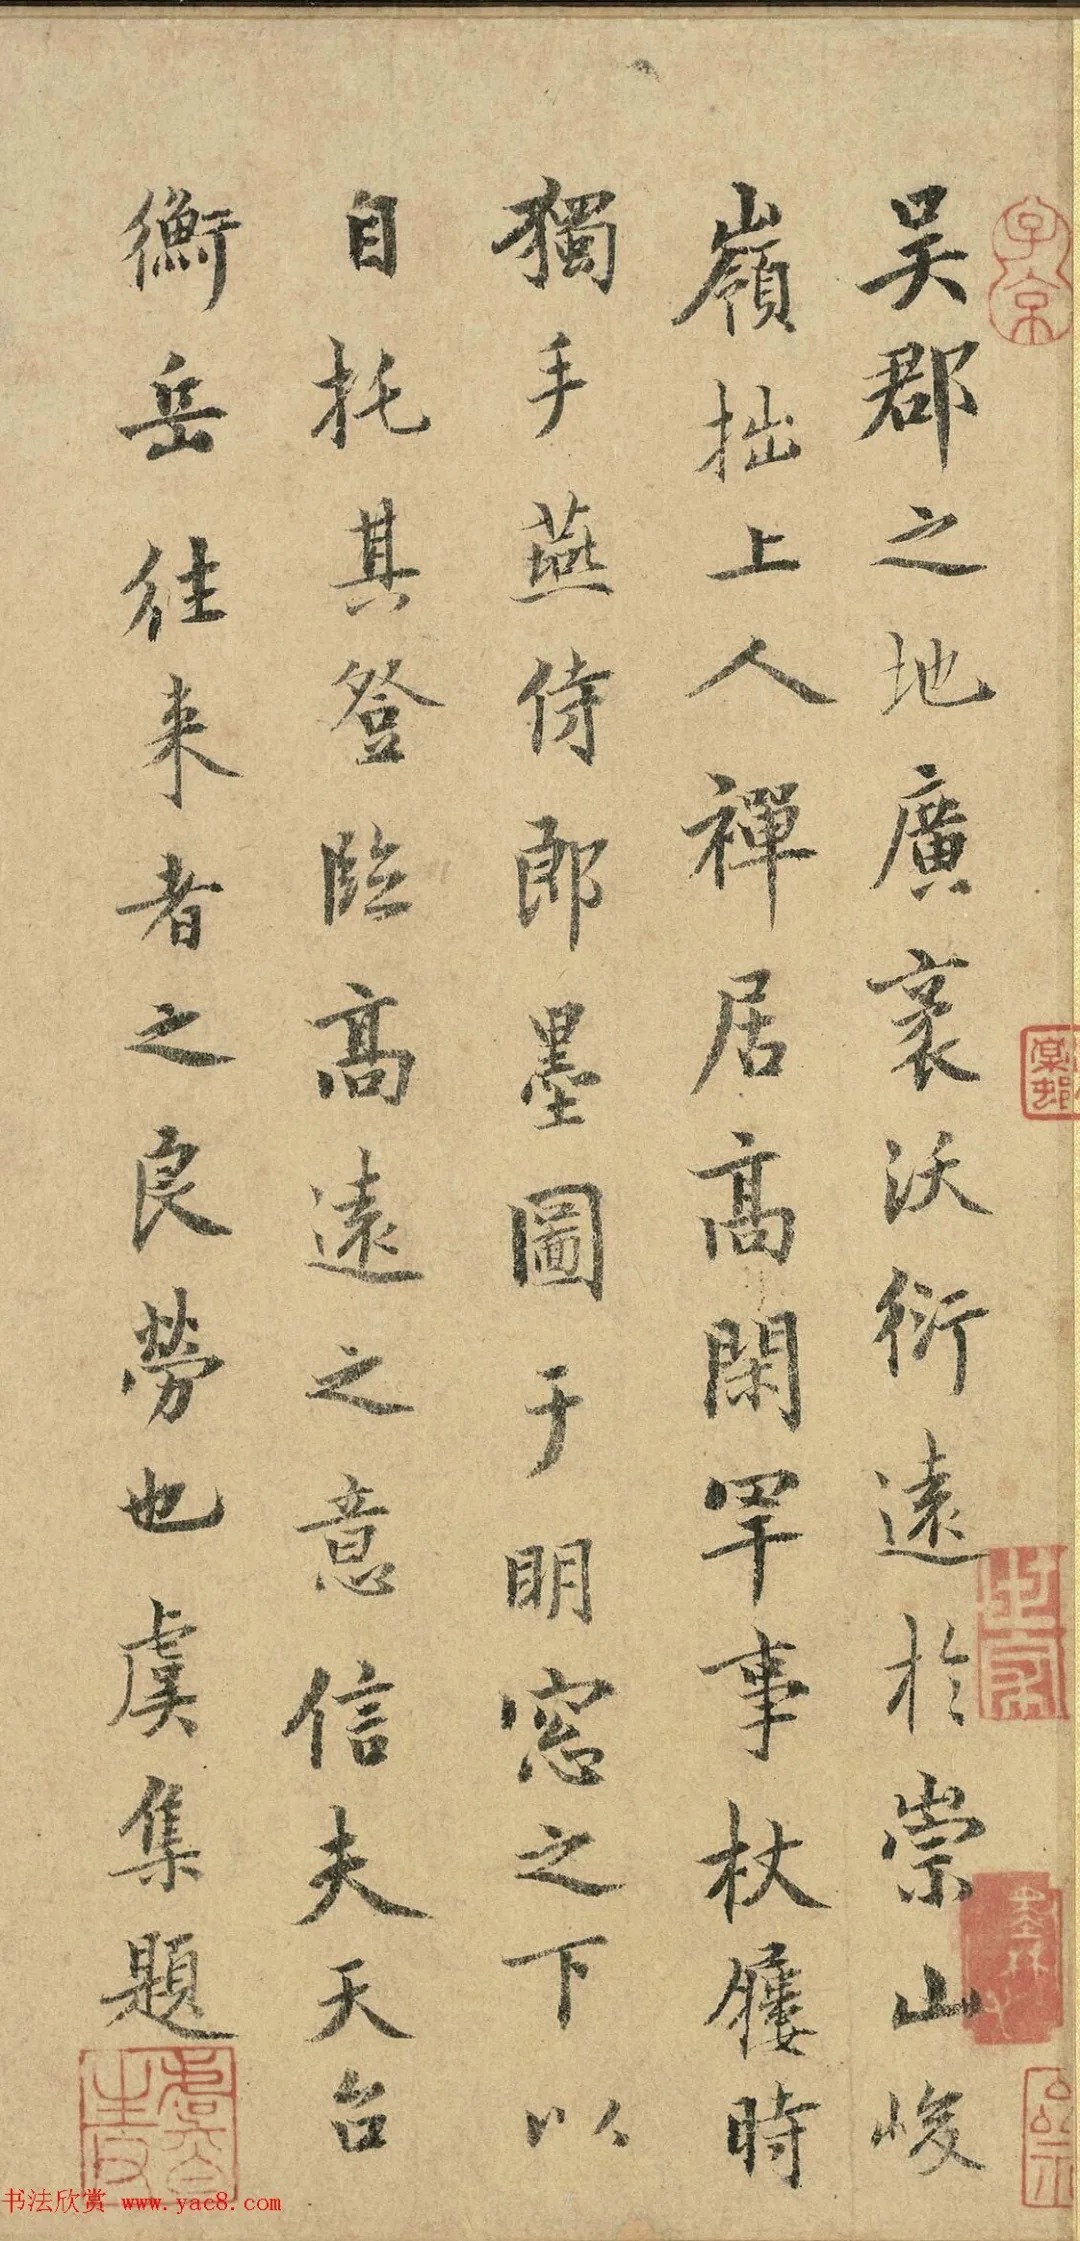 吳郡之地廣袤沃衍遠於崇山峻
嶺拙上人禪居高閑罕事杖屨時
獨手燕侍郎墨圖于明窓之下以
自托其登臨高遠之意信夫天台
衡岳往来者之良勞也虞集題
子京
棠邨
墨林
书法欣赏 www.yac8.com